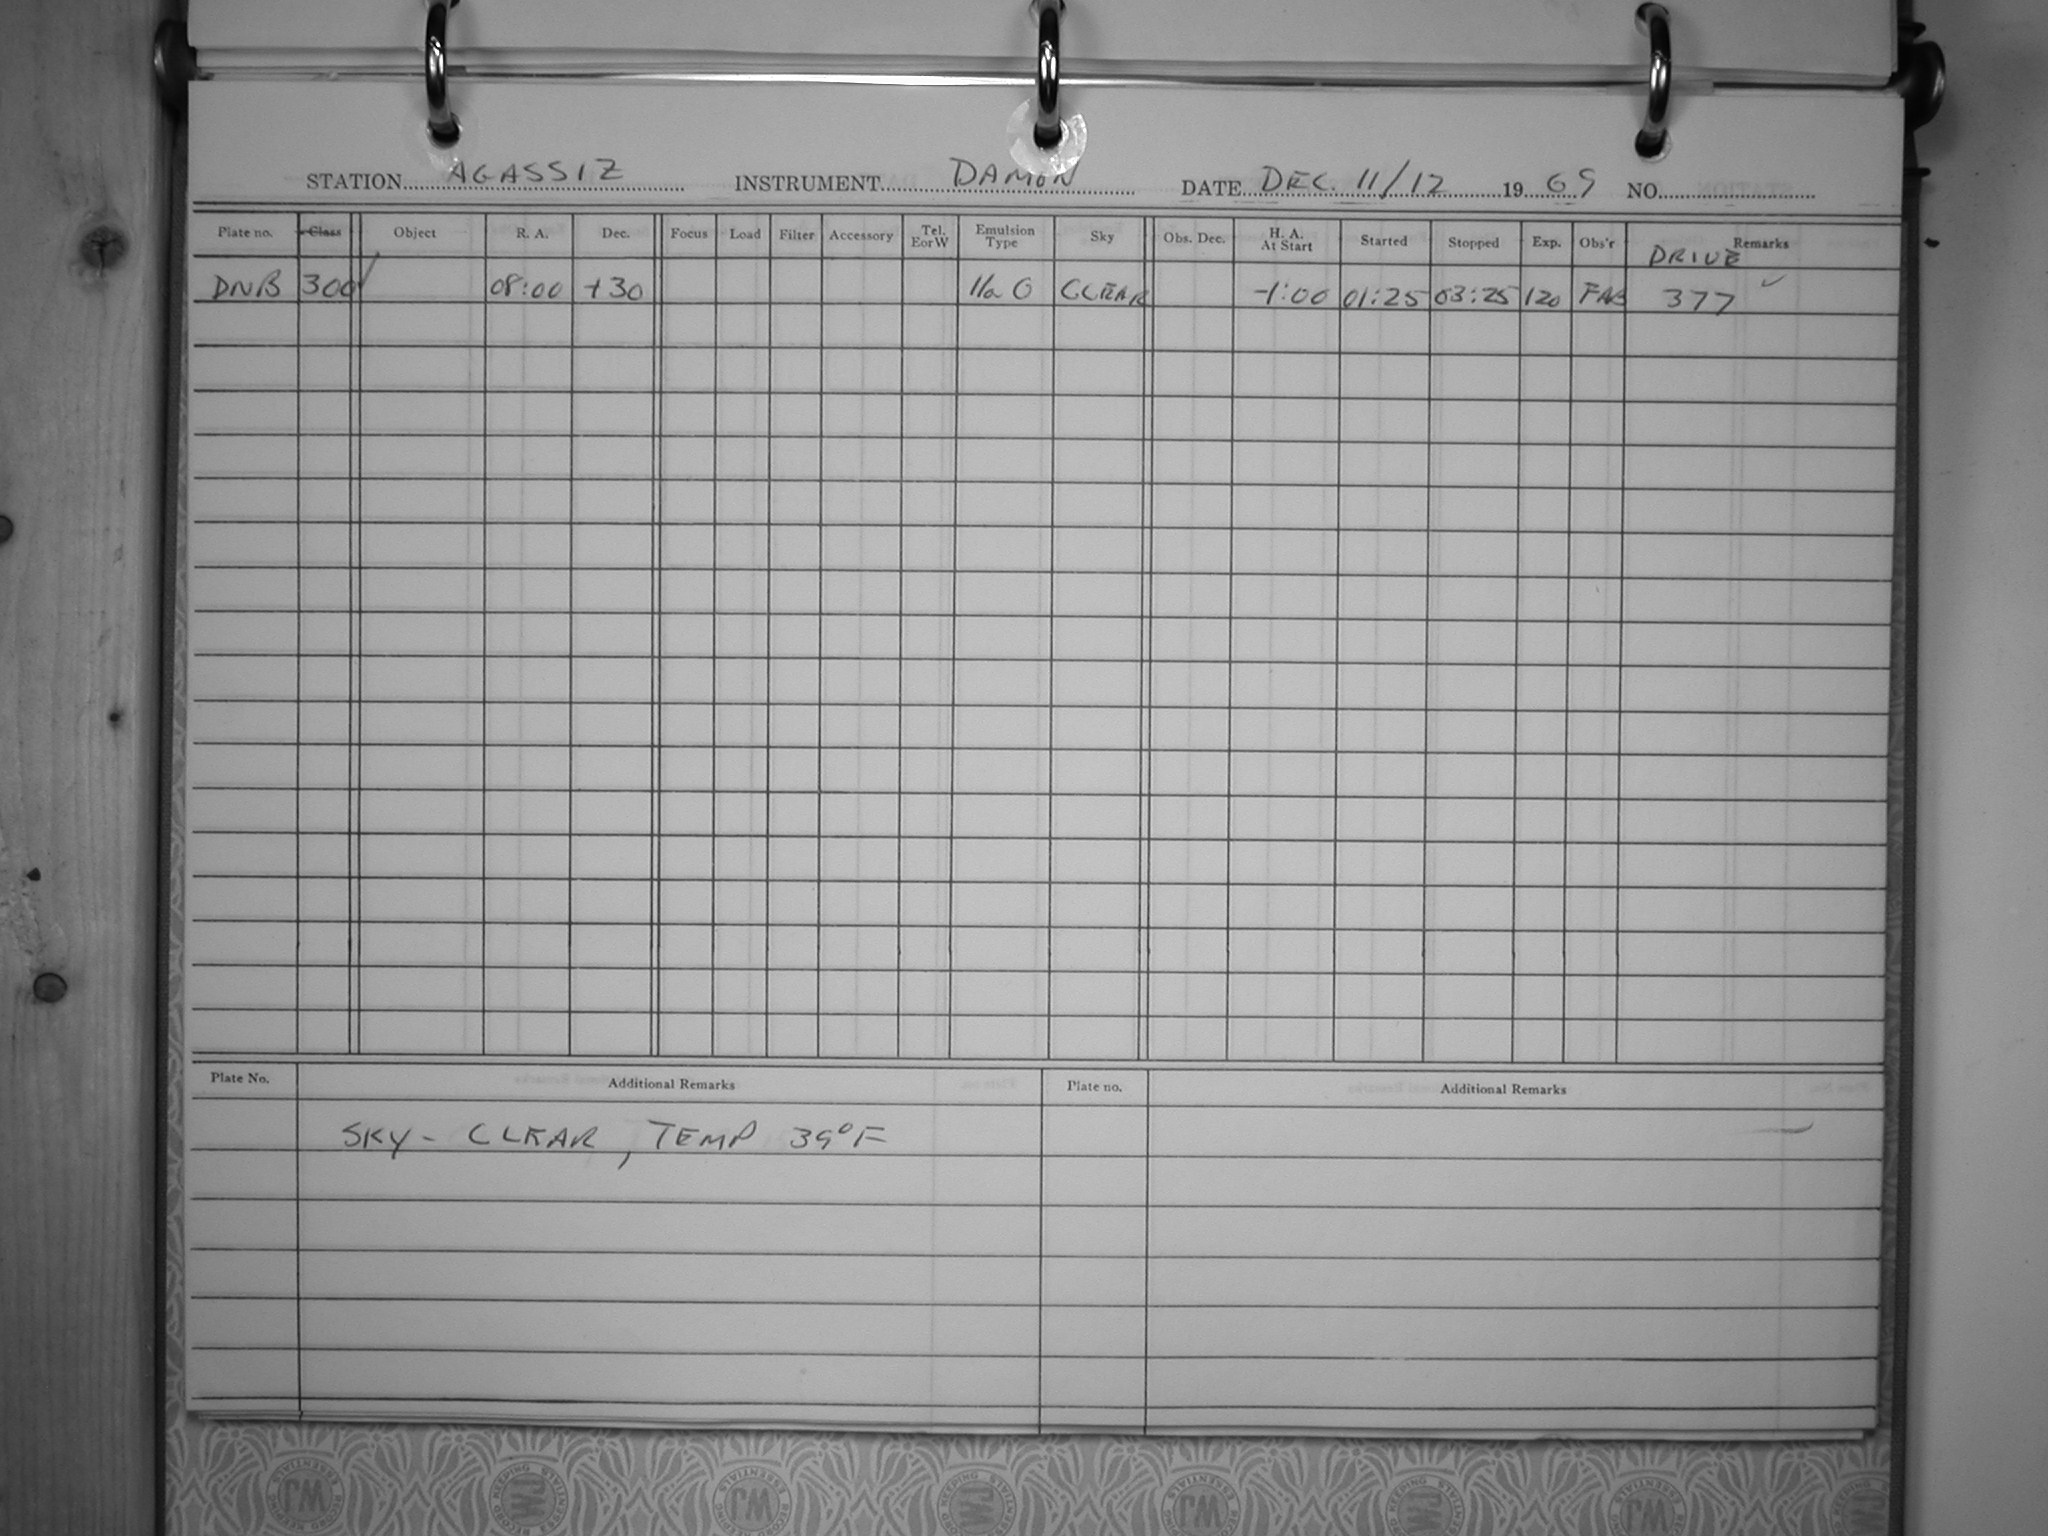 STATION AGASSIZ INSTRUMENT DAMON DATE DEC. 11/12 1969 NO.
Plate no. Class Object R. A. Dec. Focus Load Filter Accessory Tel. E or W Emulsion Type Sky Obs. Dec. H. A. At Start Started Stopped Exp. Obs'r Remarks
DRIVE
DNB 300 08:00 +30 IIa O CLEAR -1:00 01:25 03:25 120 FAB 377
Plate No. Additional Remarks Plate no. Additional Remarks
SKY - CLEAR, TEMP 39°F
WJ RECORD KEEPING ESSENTIALS